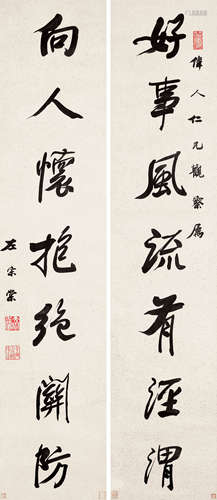 好事風流有涇渭
偉人仁兄觀察屬
向人懷抱絕關防
左宗棠